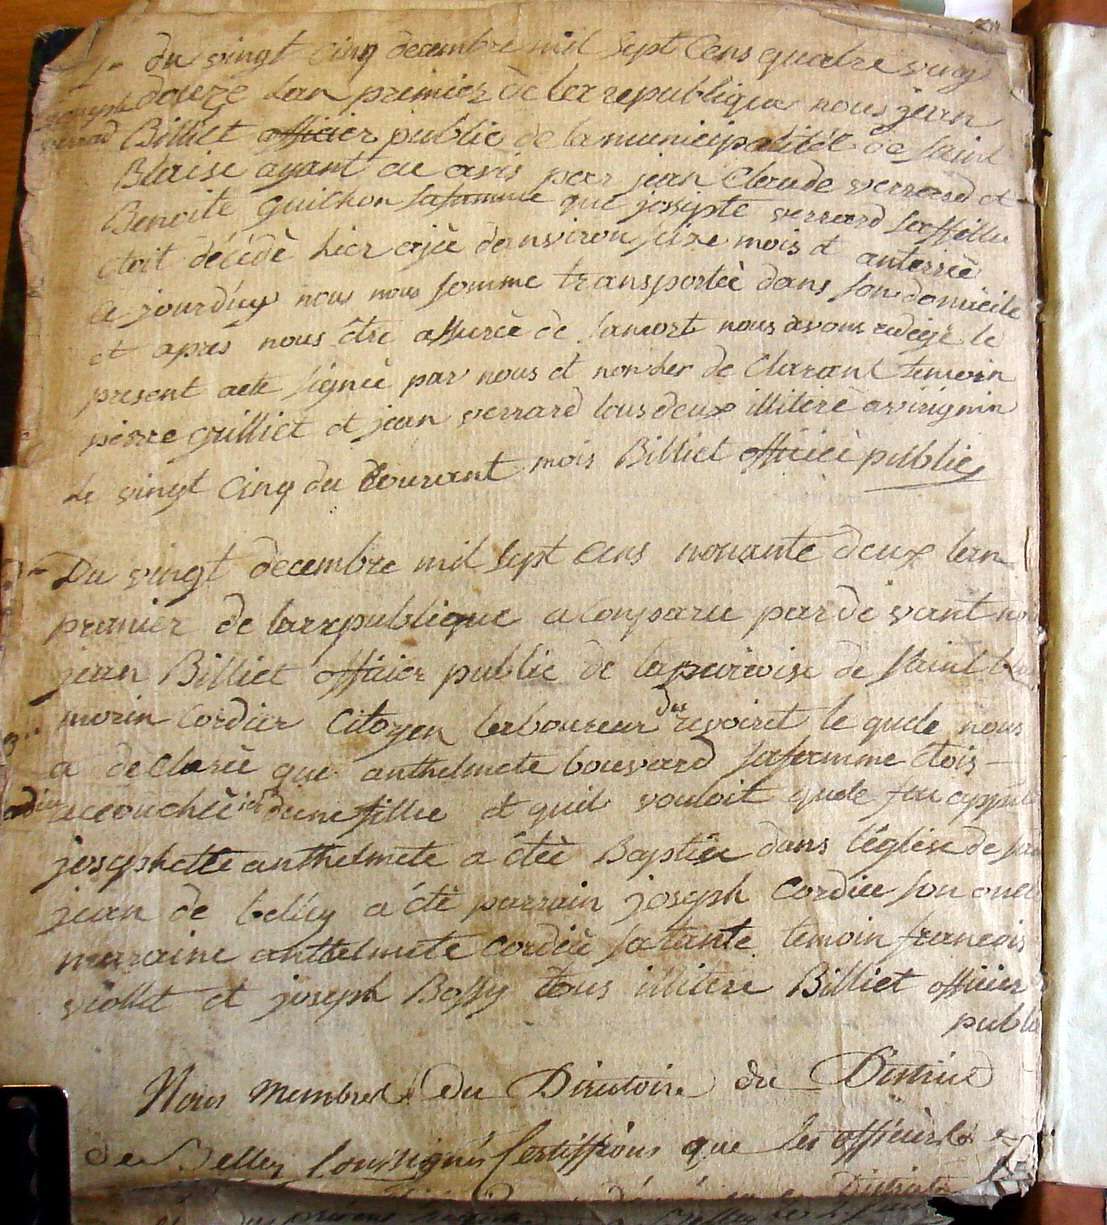 du vingt cinq decembre mil sept Cens quatre vingt
douze Lan premier de la republique nous jean
Billiet officier public de la municipalitét de Saint
Blaise ayant eu avis par jean Claude verrard et
Benoite guilhon safamme que josepte verrard saffillie
étoit décédè hier ajée denviron seize mois et anterreè
ce jourduy nous nous somme transportéè dans son domicile
et apres nous être assurèe de lamort nous avons redigé le
present acte signèe par nous et non les de Clarant temoin
pierre guilliet et jean verrard tous deux illiterè avirignin
Le vingt cinq du Courant mois Billiet officièè public
Du vingt decembre mil sept Cens nonante deux lan
premier de larrepublique a Conparu par de vant nous
jean Billiet officier public de la parroise de saint
morin Cordier Citoyen laboureur de revoiret le quele nous
a de Clareè que anthelmete bouvard safamme étois
accouchèè dune fillie et quil vouloit quele fu appele
josephette anthelmete a étèè Baptisée dans l'églisse de
jean de belley a étè parrain joseph Cordiee son oncle
marraine anthelmete Cordièe sa tante temoin francois
viollet et joseph Bossy tous illitere Billiet officier
public
Nous membres du Directoire du District
de Belley soussignés Certiffions que les officiers